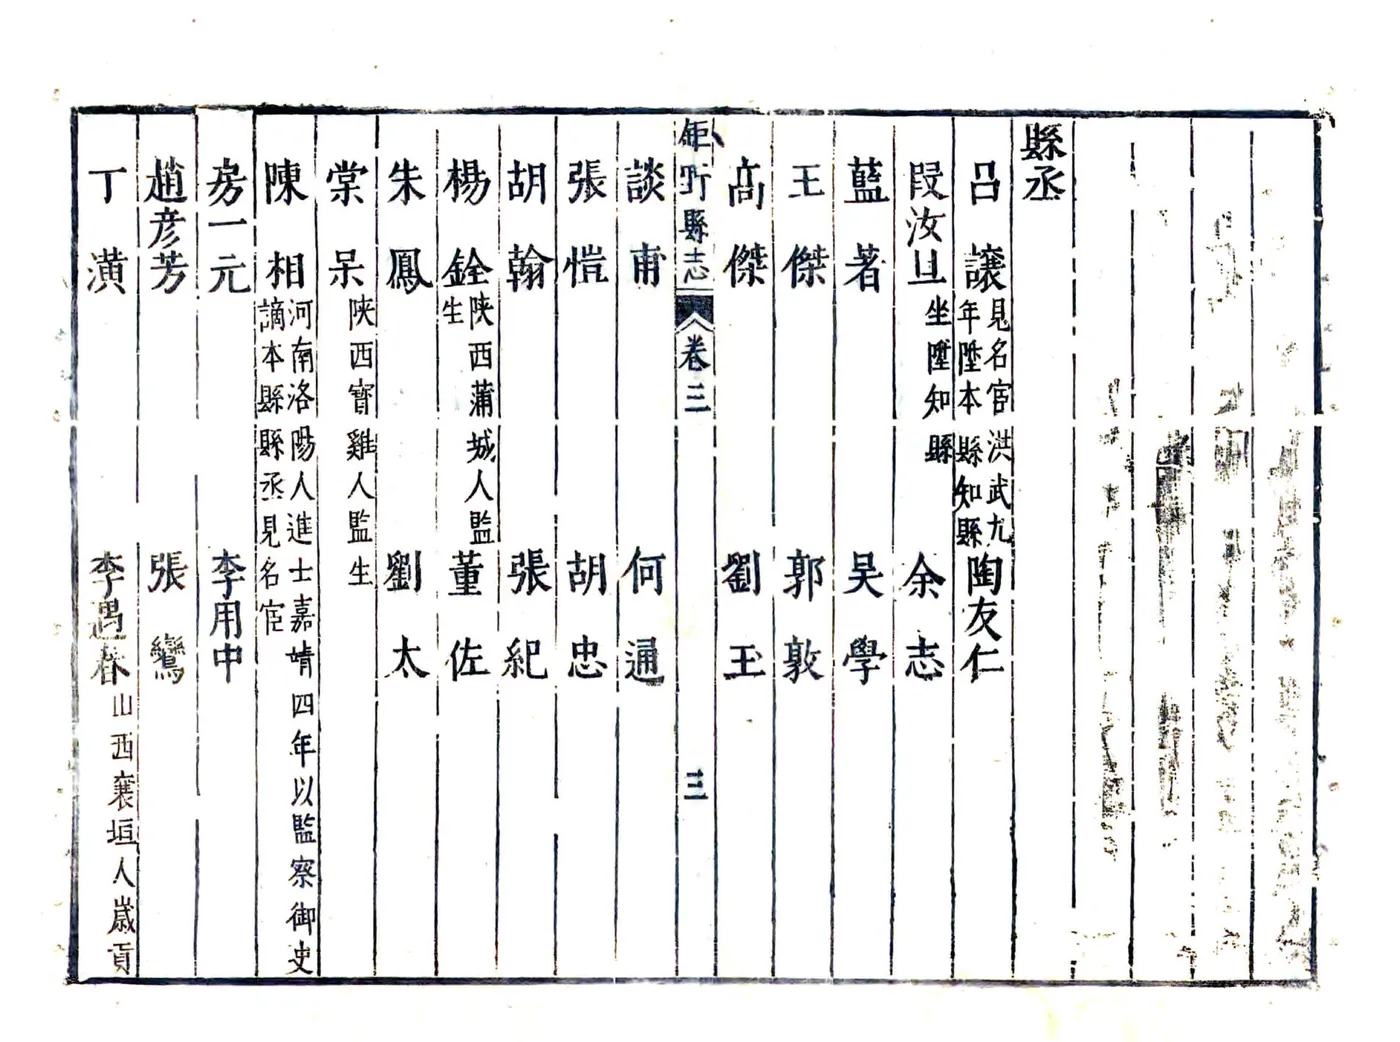 縣丞
呂讓 見名宦洪武九年陞本縣知縣 陶友仁
段汝旦 坐陞知縣 余志
藍著 吴學
王傑 郭敦
高傑 劉玉
鉅野縣志 卷三 三
談甫 何通
張愷 胡忠
胡翰 張紀
楊銓 陕西蒲城人監生 董佐
朱鳳 劉太
棠杲 陕西寳雞人監生
陳相 河南洛陽人進士嘉靖四年以監察御史謫本縣縣丞見名宦
房一元 李用中
趙彦芳 張鸞
丁潢 李遇春 山西襄垣人歳貢